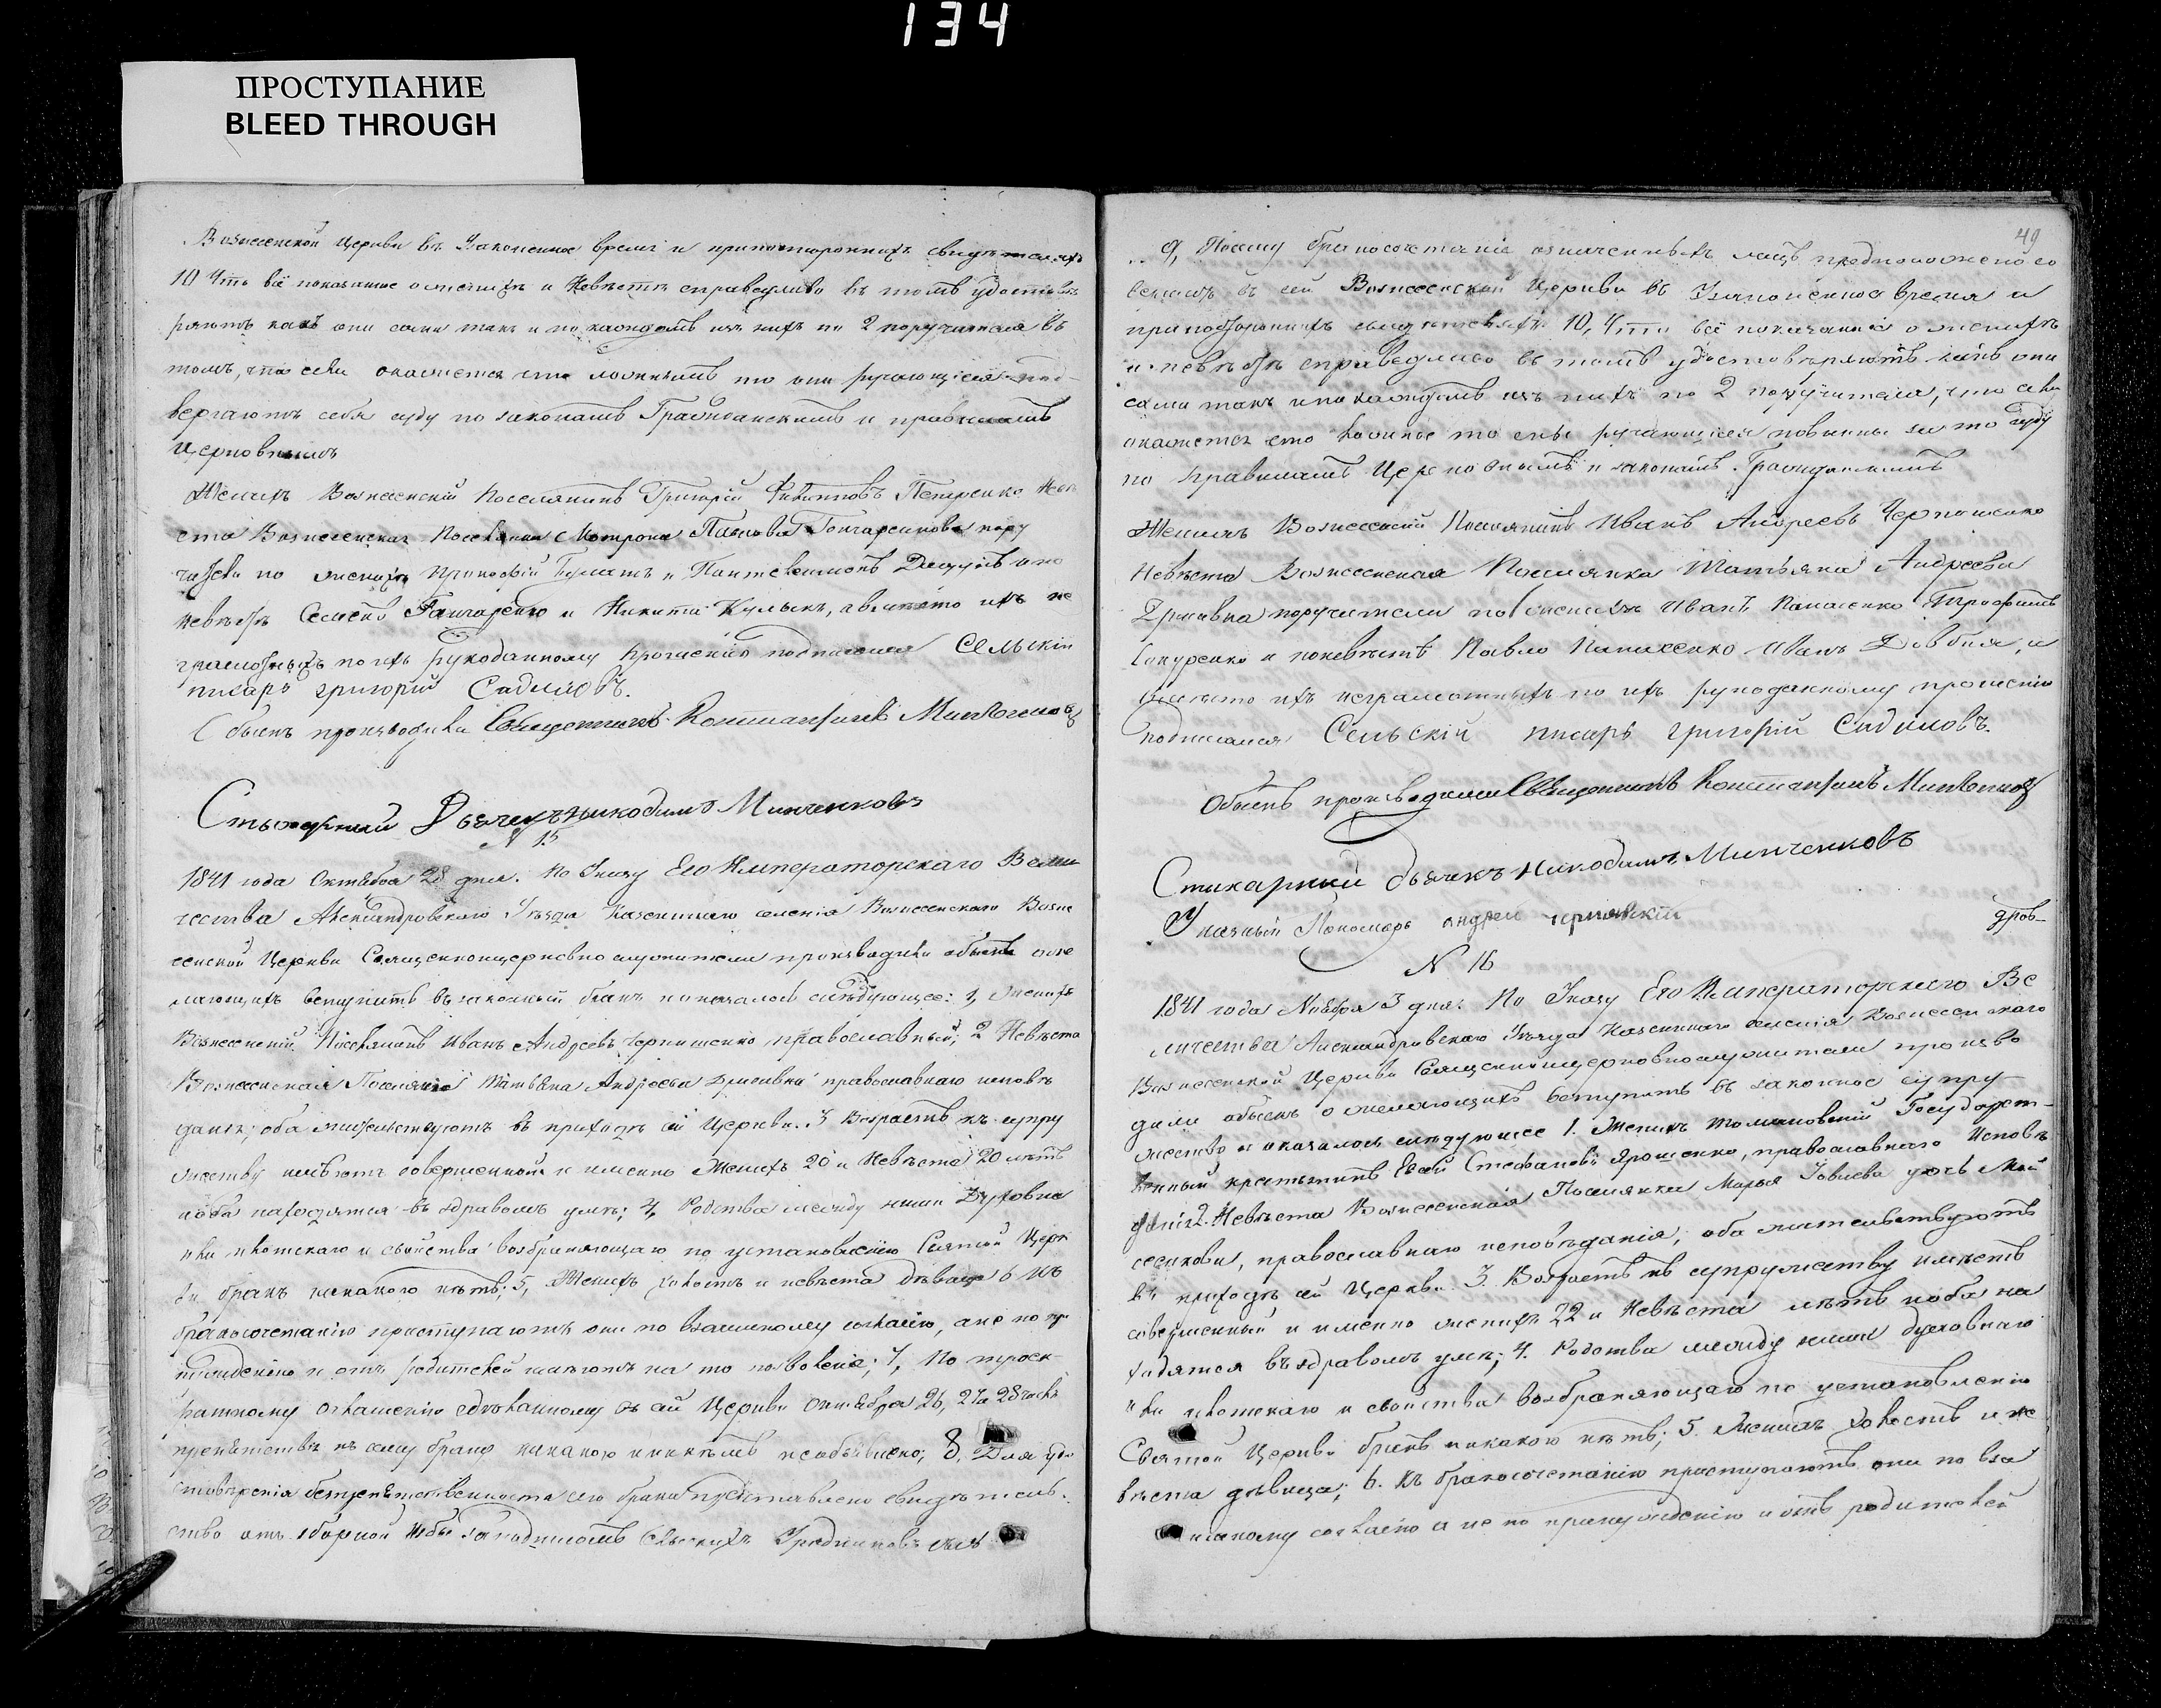 134
ПРОСТУПАНИЕ
BLEED THROUGH
Вознесенской Церкви въ Узаконенное время и припосторонихъ свидѣтеляхъ
10 Что всё показанное о женихѣ и Невѣстѣ справедливо въ томъ удостовѣ
ряютъ какъ они сами такъ и по каждомъ изъ нихъ по 2 поручителя въ
томъ, что если окажется что ложнымъ то они ручающіеся под-
вергаютъ себя суду по законамъ Гражданскимъ и правиламъ
Церковнымъ
Женихъ Вознесенскій Поселянинъ Григорій Филипповъ Невѣ
ста Вознесенская Поселянка Мотрона Павлова Гончаренкова пору
чители по женихѣ Прокофій и Пантелеимонъ по
невѣстѣ Семенъ Гончаренко и Никита Кулыкъ, авмѣсто ихъ не
грамотныхъ по ихъ рукоданному прошенію подписался Сельскій
писарь григорій Садиловъ.
Обыскъ производили Священникъ Константинъ Минченковъ
Стихарный Дьячекъ Никодимъ Минченковъ
N 15
1841 года Октября 28 дня. По Указу Его Императорскаго Вели
чества Александровского Уѣзда Казеннаго селенія Вознесенскаго Возне
сенской Церкви Священноцерковнослужители производили обыскъ оже
лающихъ вступить въ законный бракъ и оказалось слѣдующее: 1, Женихъ
Вознесенскій Поселянинъ Иванъ Андреевъ Чернишенко православный; 2 Невѣста
Вознесенская Поселянка Татьяна Андреева православнаго исповѣ
данія; оба жительствуютъ въ приходѣ сей Церкви. 3 Возрастъ къ супру
жеству имѣютъ совершенный и именно Женихъ 20 и Невѣста 20 лѣтъ
иоба находятся въ здравомъ умѣ; 4, Родства между ними Духовна
или плотскаго и свойства возбраняющаго по установленію Святой Церк
ви бракъ никакого нѣтъ; 5, Женихъ холостъ и невѣста дѣвица 6 Къ
бракосочетанію приступаютъ они по взаимному согласію, ане по при
нужденію и отъ родителей имѣютъ на то позволеніе; 7, По троек
ратному оглашенію сдѣланному въ сей Церкви Октября 26, 27 и 28 числъ
препятствія къ сему браку никакого никѣмъ необъявлено; 8, Для удо
стовѣренія безпрепятственности сего брака представлено свидѣтель-
ство отъ сборной Избы заподписомъ Сельскихъ Урядниковъ
49
9, Посему бракосочетаніе означенныхъ лицъ предположено со
вершить въ сей Вознесенской Церкви въ Узаконенное время и
припостороннихъ свидѣтеляхъ 10, Что всё показанное о женихѣ
и невѣстѣ справедливо въ томъ удостовѣряютъ какъ они
сами такъ и по каждомъ изъ нихъ по 2 поручителя, что если
окажется что ложное то они ручающіеся повинны за то суду
по правиламъ Церковнымъ и законамъ Гражданскимъ
Женихъ Вознесенскій Поселянинъ Иванъ Андреевъ Чернишенко
Невѣста Вознесенская Поселянка Татьяна Андреева
поручители по женихѣ Иванъ Трофимъ
и поневѣстѣ Павло Иванъ Довбня, и
вмѣсто ихъ неграмотныхъ по ихъ рукоданному прошенію
подписался Сельскій писарь григорій Садиловъ.
Обыскъ производили Священникъ Константинъ Минченковъ
Стихарный дьячекъ Никодимъ Минченковъ
Указный Пономарь андрей чернявскій
N 16
1841 года Ноября 3 дня. По Указу Его Императорскаго Ве
личества Александровскаго Уѣзда Казеннаго селенія Вознесенскаго
Вознесенской Церкви Священноцерковнослужители произво
дили обыскъ о желающихъ вступить въ законное супру-
жество и оказалось слѣдующее 1. Женихъ Государст-
венный крестьянинъ Стефановъ Ярошенко, православнаго Исповѣ
данія 2. Невѣста Вознесенская Поселянка Марья дочь Мои
сеенкова, православнаго исповѣданія, оба жительствуютъ
въ приходѣ сей Церкви 3. Возрастъ къ супружеству имѣютъ
совершенный и именно женихъ 22 и Невѣста лѣтъ иоба на
ходятся въ здравомъ умѣ; 4. Родства между ними духовнаго
или плотскаго и свойства возбраняющаго по установленію
Святой Церкви бракъ никакого нѣтъ; 5. Женихъ холостъ и не
вѣста дѣвица; 6. Къ бракосочетанію приступаютъ они по вза
имному согласію а не по принужденію и отъ родителей